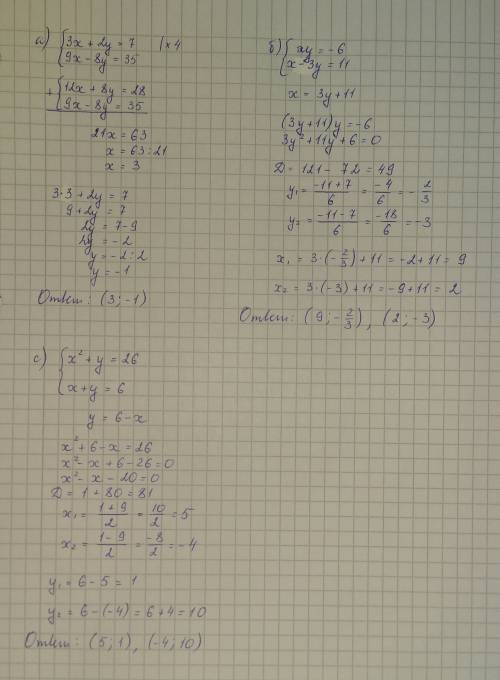 а) { 3x + 2y = 7 | × 4
9x - 8y = 35
+ { 12x + 8y = 28
9x - 8y = 35
21x = 63
x = 63 : 21
x = 3
3·3 + 2y = 7
9 + 2y = 7
2y = 7 - 9
2y = -2
y = -2 : 2
y = -1
Ответ: (3; -1)
б) { xy = -6
x - 3y = 11
x = 3y + 11
(3y + 11)y = -6
3y² + 11y + 6 = 0
D = 121 - 72 = 49
y₁ = (-11 + 7)/6 = -4/6 = -2/3
y₂ = (-11 - 7)/6 = -18/6 = -3
x₁ = 3·(-2/3) + 11 = -2 + 11 = 9
x₂ = 3·(-3) + 11 = -9 + 11 = 2
Ответ: (9; -2/3), (2; -3)
с) { x² + y = 26
x + y = 6
y = 6 - x
x² + 6 - x = 26
x² - x + 6 - 26 = 0
x² - x - 20 = 0
D = 1 + 80 = 81
x₁ = (1 + 9)/2 = 10/2 = 5
x₂ = (1 - 9)/2 = -8/2 = -4
y₁ = 6 - 5 = 1
y₂ = 6 - (-4) = 6 + 4 = 10
Ответ: (5; 1), (-4; 10)